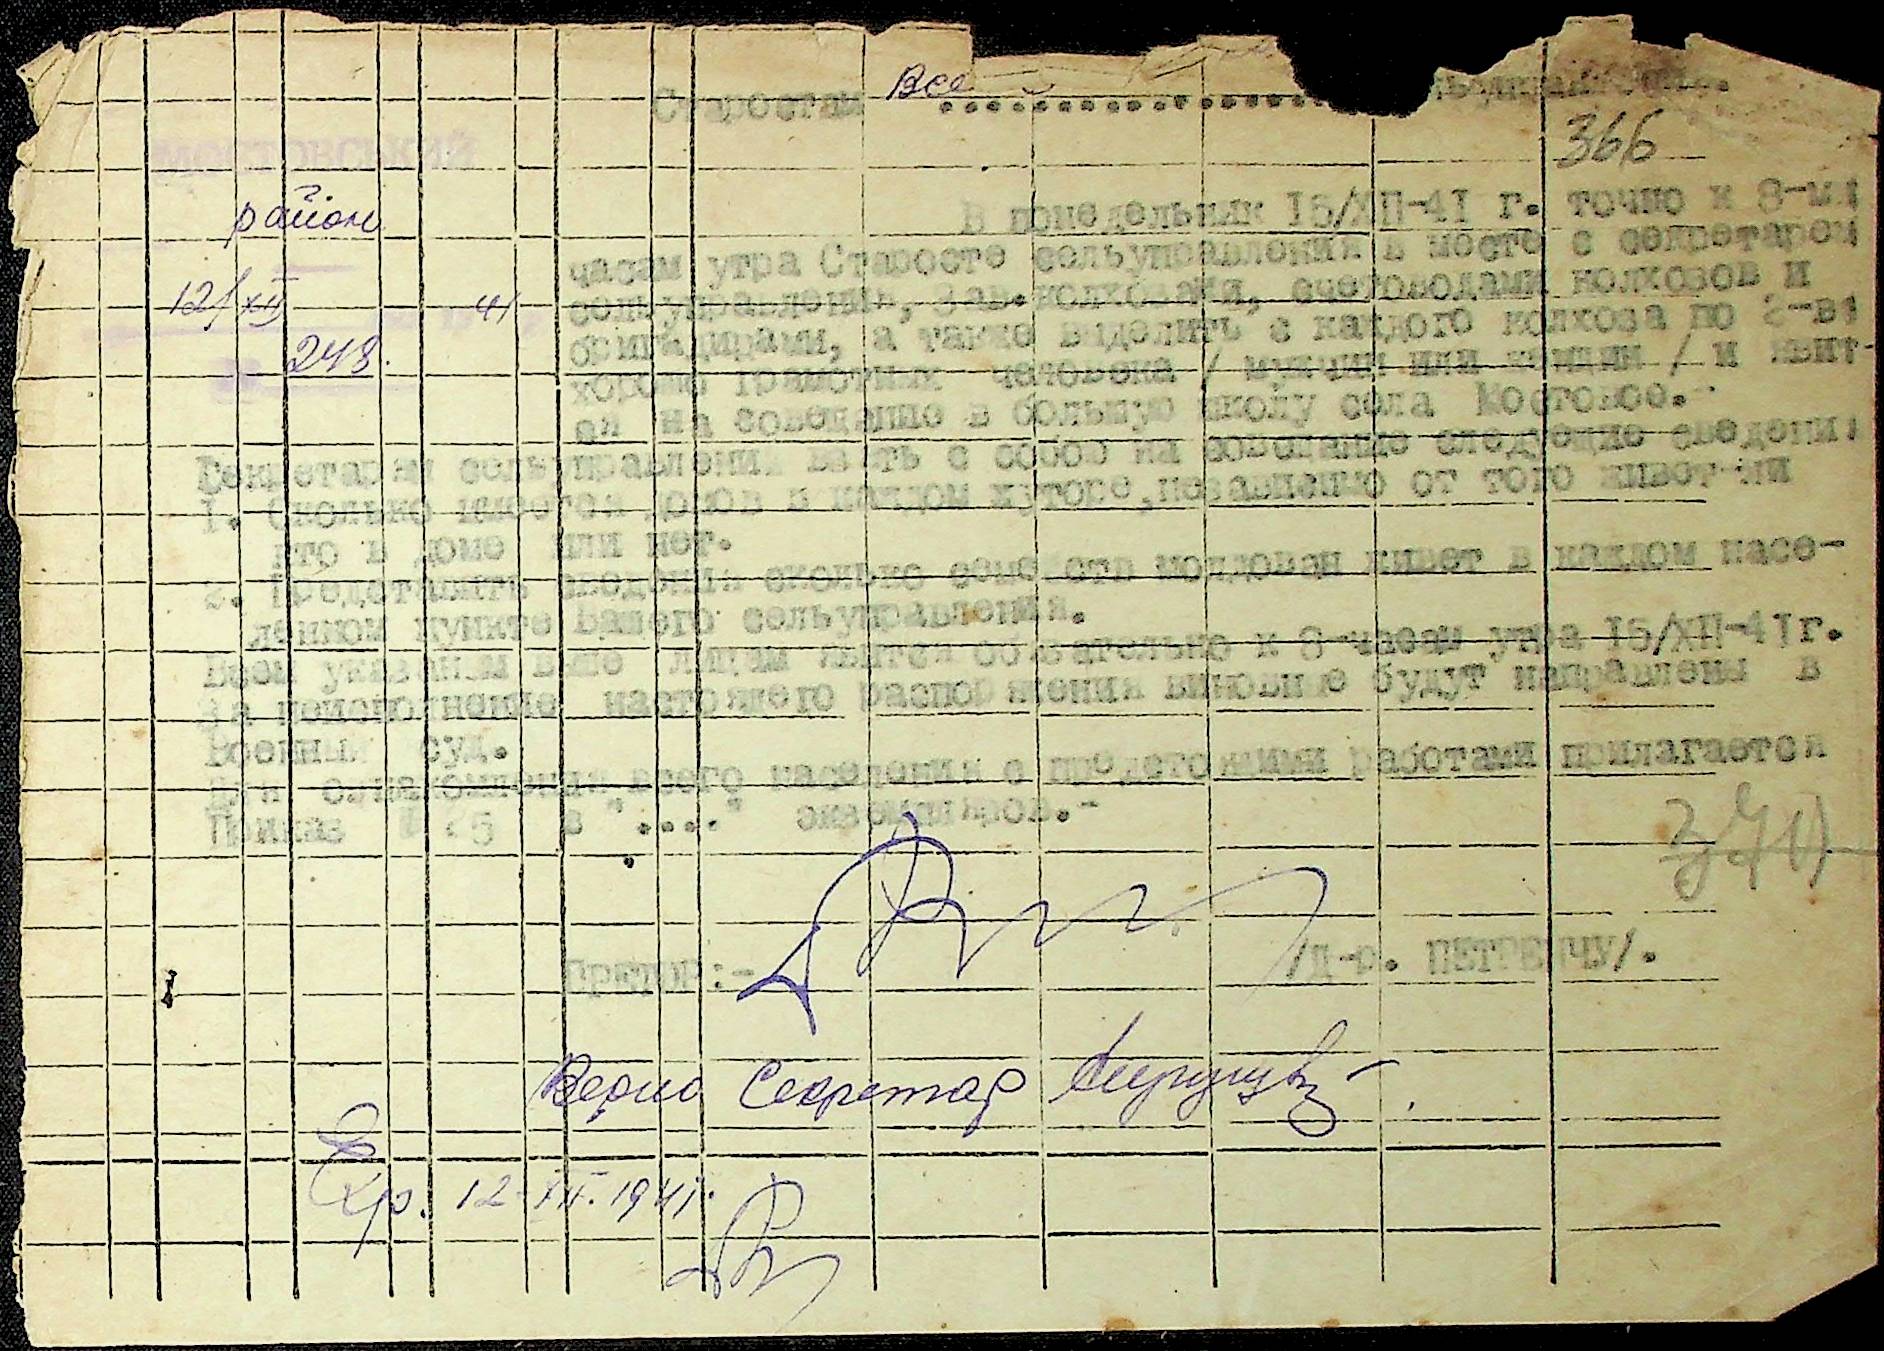 Старостам Все
366
МОСТОВСЬКИЙ
район
12/XII 41
248.
В понедельник I5/XII-4I г. точно к 8-ми
часам утра Старосте сельуправления в месте с секретарем
сельуправления, Зав.колхозами, счетоводами колхозов и
бригадирами, а также выделить с каждого колхоза по 2-ва
хорошо грамотных человека / мужчин или женщин / и явит-
ся на совещание в большую школу села Мостовое.-
Секретарям сельуправления взять с собою на совещание следующие сведения
1. Сколько имеется домов в каждом хуторе,независимо от того живет-ли
кто в доме или нет.
2. Представить сведения сколько семейств молдован живет в каждом насе-
ленном пункте Вашего сельуправления.
Всем указаным выше лицам явится обязательно к 8-часам утра I5/XII-4Iг.
За неисполнение настоящего распоряжения виновные будут направлены в
Военный суд.
Для ознакомления всего населения с предстоящими работами прилагается
Приказ 25 в "...." экземпляров.-
ПРЕТОР:- /Д-р. ПЕТРЕНЧУ/.
Верно Секретар
12-XII.1941г.